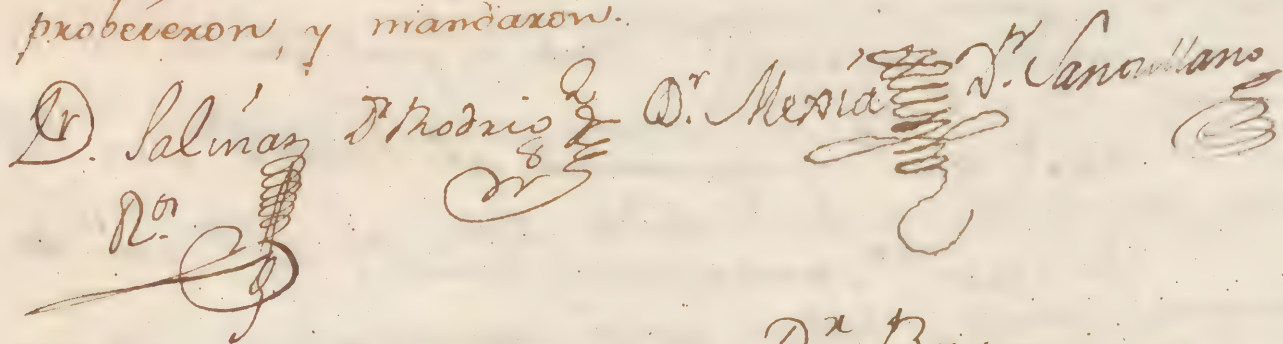 probeieron, y mandaron.
Dr. Salinas Dr Rodrig Dr. Mexia Dr.
Ror.
Dr